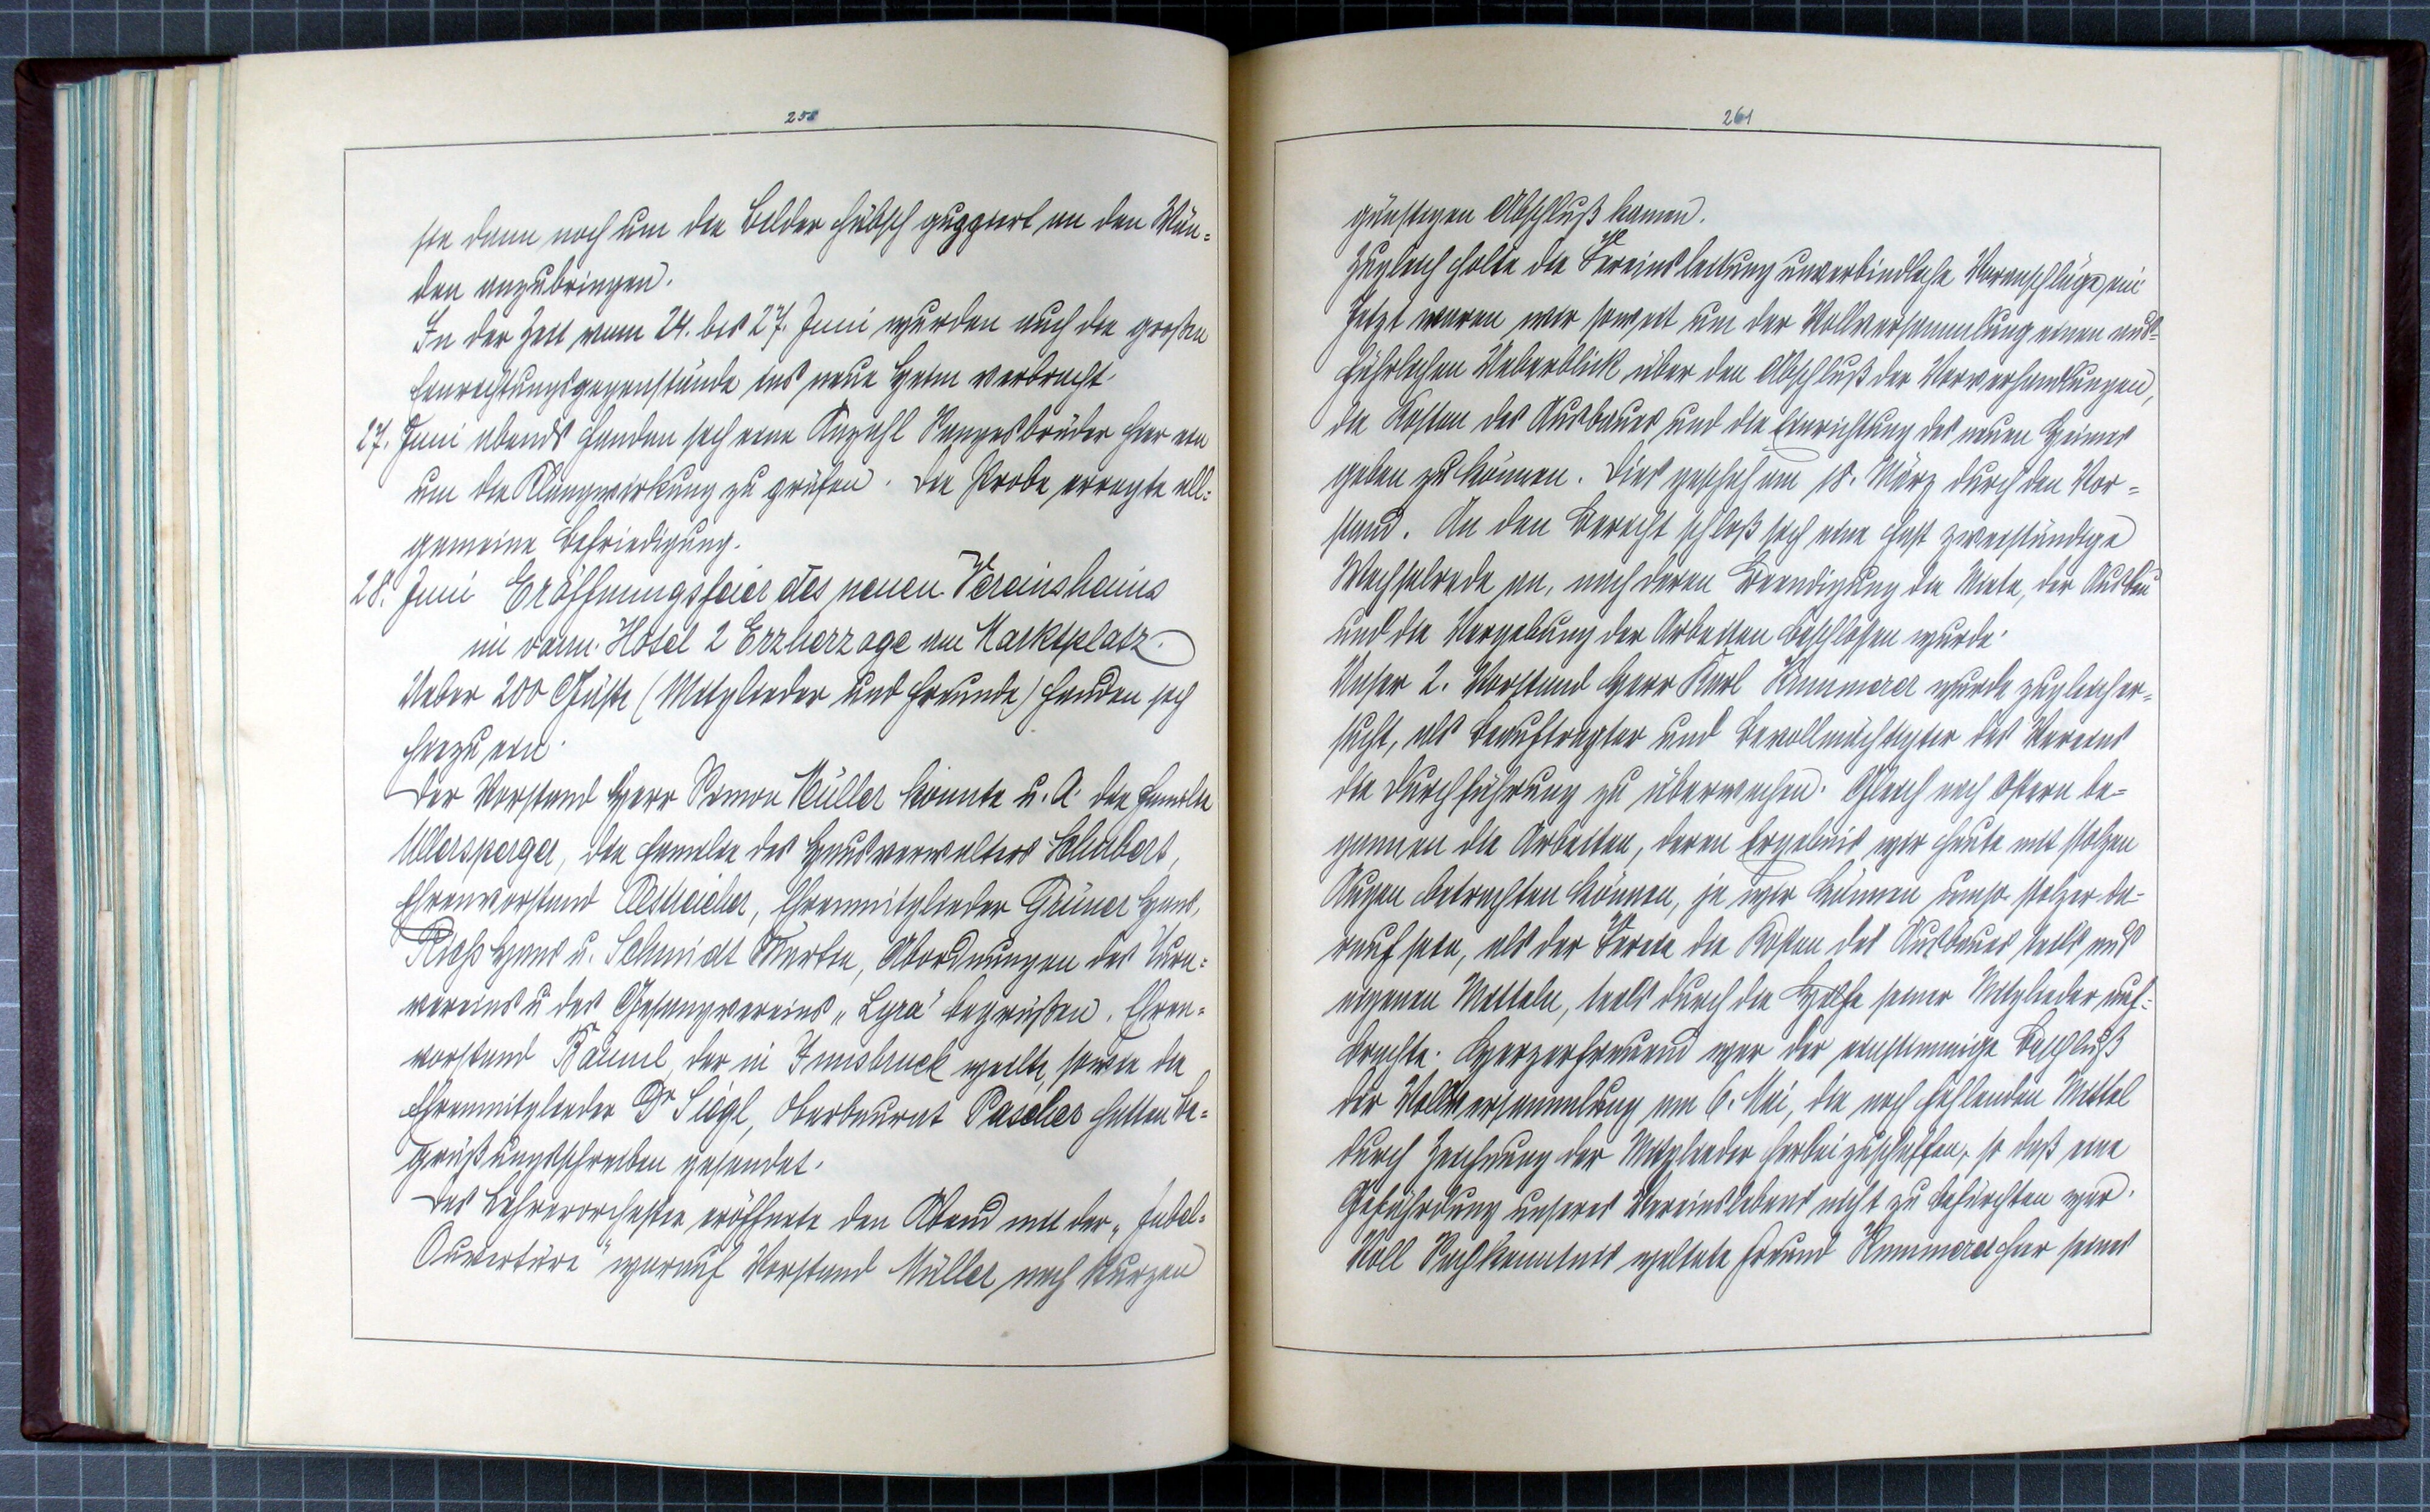 258
sie dann noch um die Bilder hübsch guppiert an den Wän=
den anzubringen.
In der Zeit vom 24. bis 27. Juni wurden auch die großen
Einrichtungsgegenstände ins neue Heim verbracht.
27. Juni abends fanden sich eine Anzahl Sangesbrüder hier ein
um die Klangwirkung zu prüfen. Die Probe erregte all=
gemeine Befriedigung.
28. Juni Eröffnungsfeier des neuen Vereinsheims
im vorm. Hotel 2 Erzherzoge am Marktplatz.
Ueber 200 Gäste (Mitglieder und Freunde) fanden sich
hiezu ein.
Der Vorstand Herr Simon Müller konnte u. A. die Familie
Ullersperger, die Familie des Hausverwalters Schubert,
Ehrenvorstand Oestreicher, Ehrenmitglieder Grüner Hans,
Rieß Hans u. Schmidt Martin, Abordnungen des Turn=
vereins u des Gesangvereins „Lyra" begrüßen. Ehren=
vorstand Bäuml, der in Innsbruck weilte, sowie die
Ehrenmitglieder Dr Siegl, Oberbaurat Pascher hatten Be=
grüßungsschreiben gesendet.
Das Lehrerorchester eröffnete den Abend mit der „Jubel=
Ouvertüre" worauf Vorstand Müller nach kurzen
261
günstigen Abschluß kamen.
Zugleich holte die Vereinsleitung unverbindliche Voranschläge ein.
Jetzt waren wir soweit um der Vollversammlung einen aus=
führlichen Ueberblick über den Abschluß der Vorverhandlungen,
die Kosten des Ausbaues und die Einrichtung des neuen Heimes
geben zu können. Dies geschah am 18. März durch den Vor=
stand. An den Bericht schloß sich eine fast zweistündige
Wechselrede an, nach deren Beendigung die Miete, der Ausbau
und die Vergebung der Arbeiten beschlossen wurde.
Unser 2. Vorstand Herr Karl Kummerer wurde zugleich er=
sucht, als Beauftragter und Bevollmächtigter des Vereins
die Durchführung zu überwachen. Gleich nach Ostern be=
gannen die Arbeiten, deren Ergebnis wir heute mit stolzen
Augen betrachten können, ja wir können umso stolzer da=
rauf sein, als der Verein die Kosten des Ausbaues teils aus
eigenen Mitteln, teils durch die Hilfe seiner Mitglieder auf=
brachte. Herzerfreuend war der einstimmige Beschluß
der Vollversammlung am 6. Mai, die noch fehlenden Mittel
durch Zeichnung der Mitglieder herbeizuschaffen, so daß eine
Gefährdung unseres Vereinslebens nicht zu befürchten war.
Voll Sachkenntnis waltete Freund Kummerer hier seines